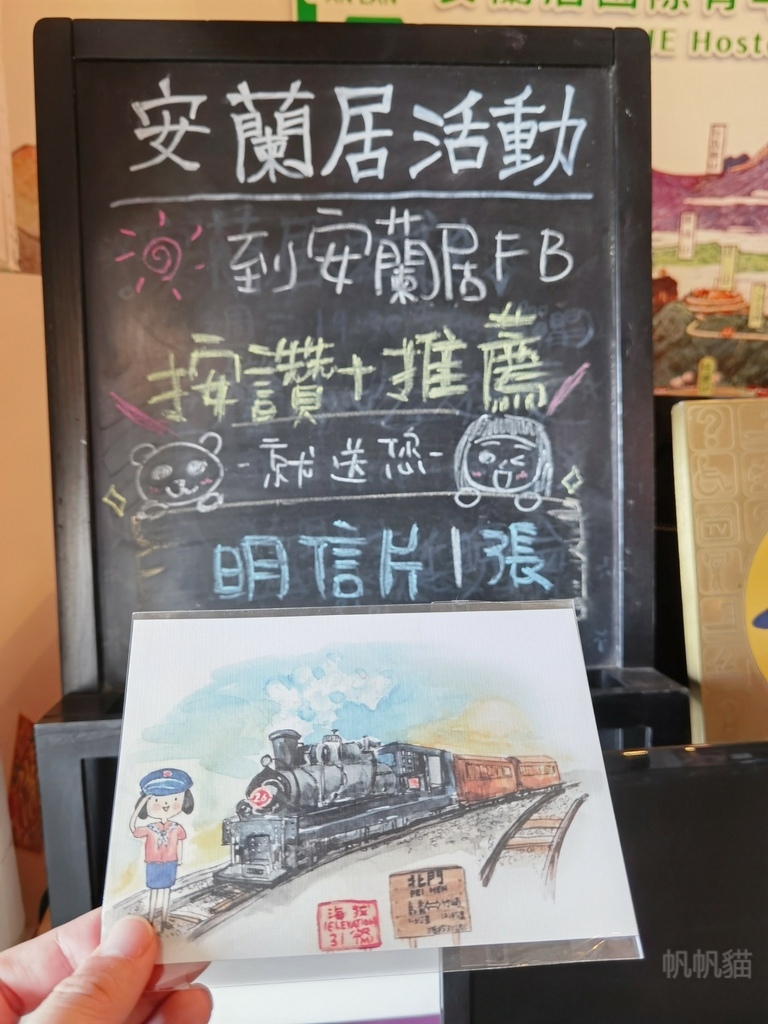 安蘭居活動
到安蘭居FB
按讚+推薦
-就送您-
明信片1張
北門
PEI MEN
海拔
ELEVATION
31
帆帆貓